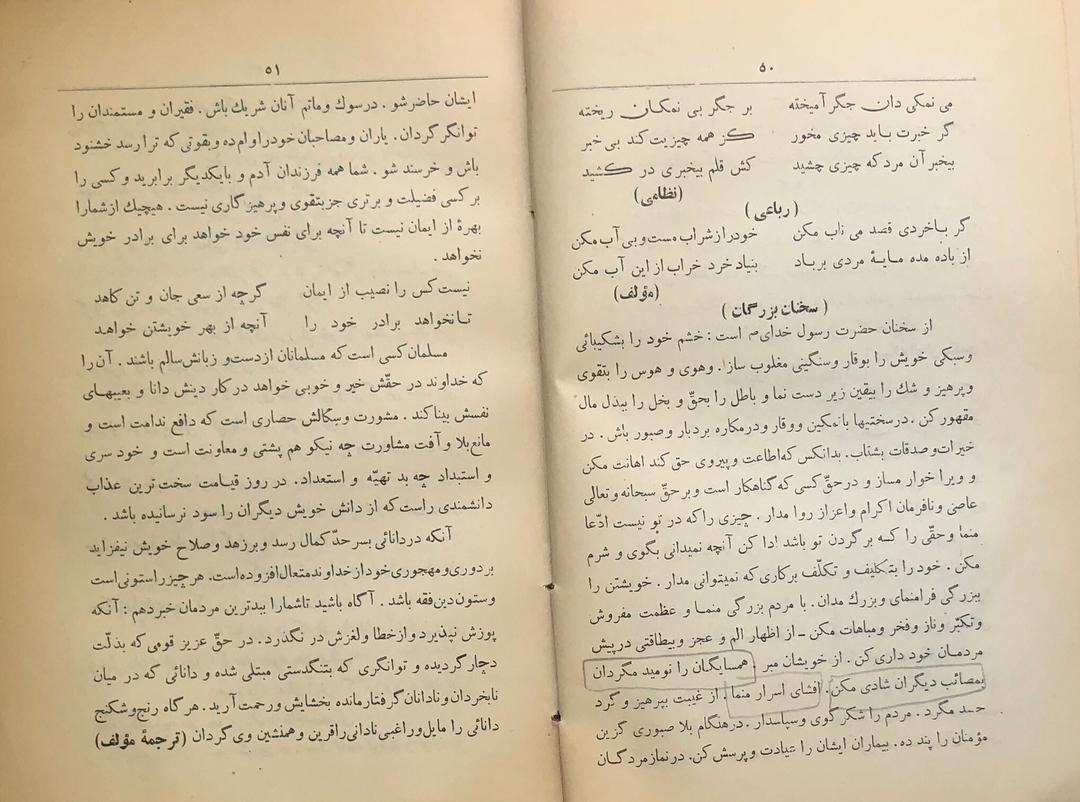 ۵۰
می نمکی دان جگر آمیخته بر جگر بی نمکان ریخته
گر خبرت باید چیزی مخور کز همه چیزیت کند بی خبر
بیخبر آن مرد که چیزی چشید کش قلم بیخبری در کشید
(نظامی)
(رباعی)
گر باخردی قصد می ناب مکن خود را ز شراب مست و بی آب مکن
از باده مده مایهٔ مردی بر باد بنیاد خرد خراب از این آب مکن
(مؤلف)
(سخنان بزرگان)
از سخنان حضرت رسول خدای ص است : خشم خود را بشکیبائی
وسبکی خویش را بوقار و سنگینی مغلوب ساز . وهوی و هوس را بتقوی
و پرهیز و شك را بیقین زیر دست نما و باطل را بحقّ و بخل را ببذل مال
مقهور کن . در سختیها با تمکین و وقار و در مکاره بردبار و صبور باش . در
خیرات و صدقات بشتاب . بدانکس که اطاعت و پیروی حق کند اهانت مکن
و ویرا خوار مساز و در حقّ کسی که گناهکار است و بر حقّ سبحانه و تعالی
عاصی و نافرمان اکرام و اعزاز روا مدار . چیزی را که در تو نیست ادّعا
منما و حقّی را کـه بر گردن تو باشد ادا کن آنچه نمیدانی بگوی و شرم
مکن . خود را بتکلیف و تکلّف بر کاری که نمیتوانی مدار . خویشتن را
ببزرگی فرا منمای و بزرك مدان . با مردم بزرگی منمـا و عظمت مفروش
و تکبّر و ناز و فخر و مباهات مکن ـ از اظهار الم و عجز و بیطاقتی در پیش
مردمـان خود داری کن . از خویشان مبر . همسایگان را نومید مگردان
بمصائب دیگران شادی مکن . افشای اسرار منما . از غیبت بپرهیز و گرد
حسد مگرد . مردم را شکر گوی و سپاسدار . در هنگام بلا صبوری گزین
مؤمنان را پند ده . بیماران ایشان را عیادت و پرسش کن . در نماز مردگـان
۵۱
ایشان حاضر شو . در سوك و ماتم آنان شریك باش . فقیران و مستمندان را
توانگر گردان . یاران و مصاحبان خود را وام ده و بقوتی که ترا رسد خشنود
باش و خرسند شو . شما همه فرزندان آدم و با یکدیگر برابرید و کسی را
بر کسی فضیلت و برتری جز بتقوی و پرهیز کاری نیست . هیچیك از شما را
بهرهٔ از ایمان نیست تا آنچه برای نفس خود خواهد برای برادر خویش
نخواهد .
نیست کس را نصیب از ایمان گر چه از سعی جان و تن کاهد
تـا نخواهد برادر خود را آنچه از بهر خویشتن خواهـد
مسلمان کسی است که مسلمانان از دست و زبانش سالم باشند . آن را
که خداوند در حقّش خیر و خوبی خواهد در کار دینش دانا و بعیبهـای
نفسش بینا کند . مشورت و سگالش حصاری است که دافع ندامت است و
مانع بلا و آفت مشاورت چه نیکو هم پشتی و معاونت است و خود سری
و استبداد چه بد تهیّه و استعداد . در روز قیـامت سخت ترین عذاب
دانشمندی راست که از دانش خویش دیگران را سود نرسانیده باشد .
آنکه در دانائی بسر حدّ کمال رسد و بر زهد و صلاح خویش نیفزاید
بر دوری و مهجوری خود از خداوند متعال افزوده است . هر چیز را ستونی است
و ستون دین فقه باشد . آگاه باشید تا شما را ببدترین مردمان خبر دهم : آنکه
پوزش نپذیرد و از خطا و لغزش در نگذرد . در حقّ عزیز قومی که بذلّت
دچار گردیده و توانگری که بتنگدستی مبتلی شده و دانائی که در میان
نابخردان و نادانان گرفتار مانده بخشایش و رحمت آرید . هر گاه رنج و شکنج
دانائی را مایل و راغبی نادانی را قرین و همنشین وی گردان (ترجمهٔ مؤلف)